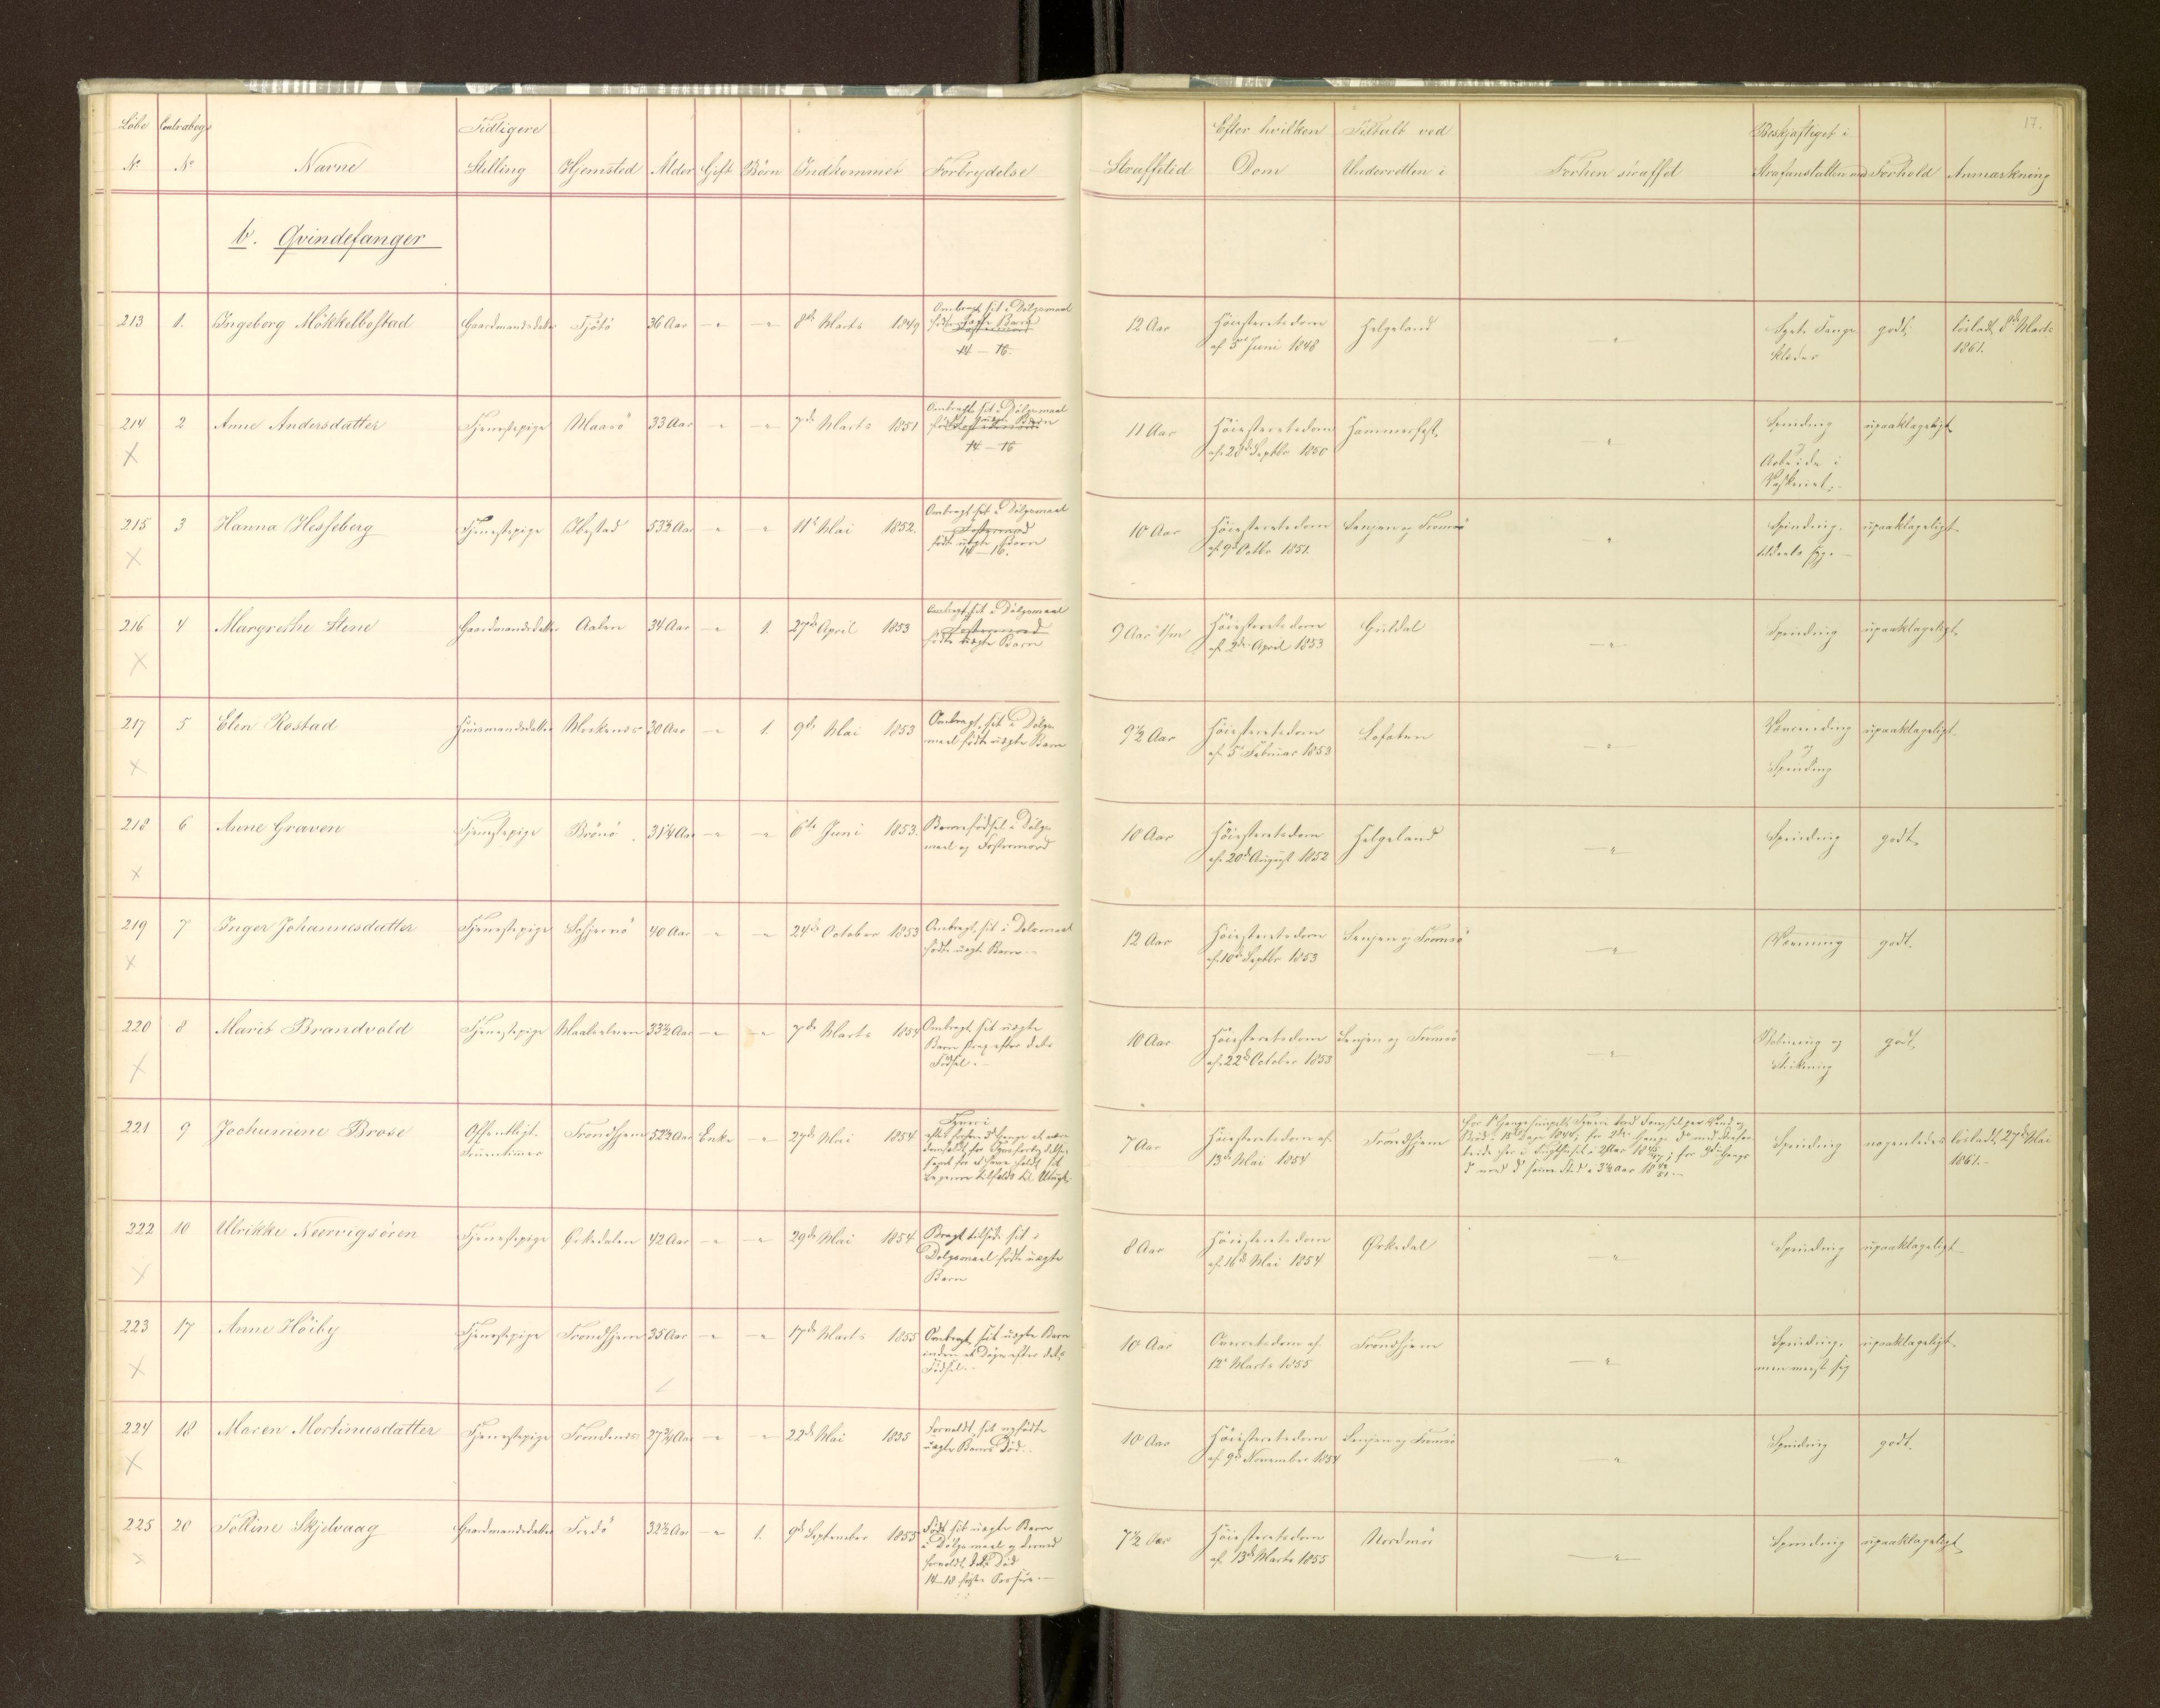 17.
Løbe No Contrabogs No Navne Tidligere Stilling Hjemsted Alder Gift Børn Indkommet Forbrydelse Straffetid Efter hvilken Dom Tiltalt ved Underretten i Forhen straffet Beskjæftiget i Strafanstalten med Forhold Anmærkning
b. Qvindefanger
213 1. Ingeborg Mökkelbostad Gaardmandsdatter Tjötö 36 Aar -"- -"- 8de Marts 1849 Ombragt sit i Dølgsmaal fødte Barn 14-16. 12 Aar Høiesteretsdom af 3die Juni 1848 Helgeland -"- Syet Fangeklæder godt løsladt 8de Marts 1861.
214 2 Anne Andersdatter Tjenestepige Maasö 33 Aar -"- -"- 7de Marts 1851 Ombragt sit i Dølgsmaal fødte uægte Barn 14-16 11 Aar Høiesteretsdom af 28de Septbr 1850 Hammerfest -"- Spinding og Arbeide i Vaskeriet. upaaklageligt
215 3 Hanna Hesseberg Tjenestepige Ibestad 53½ Aar -"- -"- 11te Mai 1852. Ombragt sit i Dølgsmaal Fostermord fødte uægte Barn 14-16. 10 Aar Høiesteretsdom af 9de Octbr 1851. Senjen og Tromsö -"- Spinding. tildeels syg. upaaklageligt
216 4 Margrethe Stene Gaardmandsdatter Aalen 34 Aar -"- 1. 27de April 1853 Ombragt sit i Dølgsmaal Fostermord fødte uægte Barn 9 Aar Høiesteretsdom af 2den April 1853 Guldal -"- Spinding upaaklageligt
217 5 Elen Rostad Huusmandsdatter Moskenæs 30 Aar -"- 1. 9de Mai 1853 Ombragt sit i Dølgsmaal fødte uægte Barn 9½ Aar Høiesteretsdom af 5te Februar 1853 Lofoten -"- og Spinding upaaklageligt
218 6 Anne Graven Tjenestepige Brönö 31¼ Aar -"- -"- 6te Juni 1853. Barnefødsel i Dølgsmaal og Fostermord 10 Aar Høiesteretsdom af 20de August 1852 Helgeland -"- Spinding godt
219 7 Inger Johannesdatter Tjenestepige 40 Aar -"- -"- 24de October 1853 Ombragt sit i Dølgsmaal fødte uægte Barn 12 Aar Høiesteretsdom af 10de Septbr 1853 Senjen og Tromsö -"- Vævning godt.
220 8 Marit Brandvold Tjenestepige Maalselven 33½ Aar -"- -"- 7de Marts 1854 Ombragt sit uægte Barn strax efter dets Fødsel. 10 Aar Høiesteretsdom af 22de October 1853 Senjen og Tromsö -"- og Strikning godt
221 9 Jochumine Brose Offentligt Fruentimmer Trondhjem 52½ Aar Enke -"- 27de Mai 1854 Tyveri 7 Aar Høiesteretsdom af 13de Mai 1854 Trondhjem Spinding nogenledes løsladt 27de Mai 1861.
222 10 Ulrikke Neervigsören Tjenestepige Orkedalen 42 Aar -"- -"- 29de Mai 1854 Bragt tilside sit i Dølgsmaal fødte uægte Barn 8 Aar Høiesteretsdom af 16de Mai 1854 Orkedal -"- Spinding upaaklageligt
223 17 Anne Höiby Tjenestepige Trondhjem 35 Aar -"- -"- 17de Marts 1855 Ombragt sit uægte Barn inden et Døgn efter dets Fødsel. 10 Aar Overretsdom af 12te Marts 1855 Trondhjem -"- Spinding. men meest syg upaaklageligt
224 18 Maren Martinusdatter Tjenestepige Trondenæs 27¾ Aar -"- -"- 22de Mai 1855 Forvoldt sit nyfødte uægte Barns Død. 10 Aar Høiesteretsdom af 9de November 1854 Senjen og Tromsö -"- Spinding godt.
225 20 Folline Skjelvaag Gaardmandsdatter Tredö 32½ Aar -"- 1. 9de September 1855 Født sit uægte Barn i Dølgsmaal og derved forvoldt dets Død 14-18 7½ Aar Høiesteretsdom af 13de Marts 1855 Nordmör -"- Spinding upaaklageligt